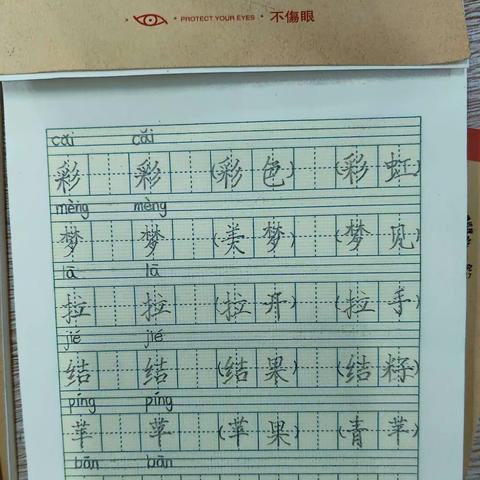 • PROTECT YOUR EYES • 不傷眼
cǎi cǎi
彩 彩 (彩色) (彩虹)
mèng mèng
梦 梦 (美梦) (梦见)
lā lā
拉 拉 (拉开) (拉手)
jié jié
结 结 (结果) (结籽)
píng píng
苹 苹 (苹果) (青苹)
bān bān